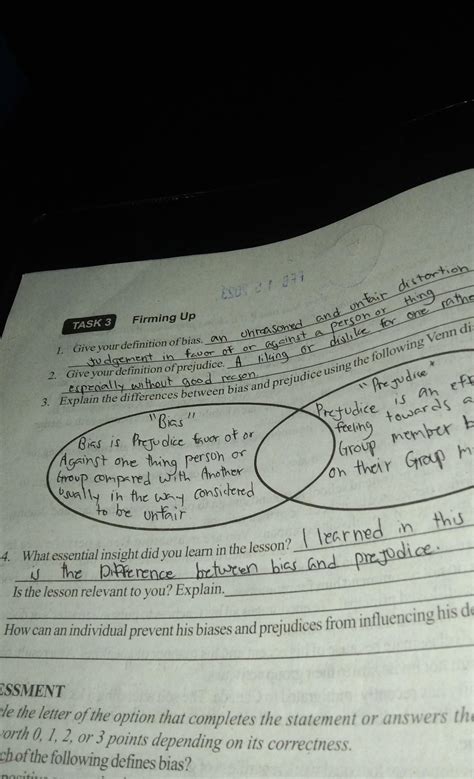 TASK 3 Firming Up
1. Give your definition of bias. an unreasoned and unfair distortion
judgement in favor of or against a person or thing
2. Give your definition of prejudice. A liking or dislike for one rathe
especially without good reason
3. Explain the differences between bias and prejudice using the following Venn di
"Bias"
Bias is Prejudice favor of or
Against one thing person or
Group compared with Another
usually in the way considered
to be unfair
"Prejudice"
Prejudice is an
feeling towards a
Group member b
on their Group m
4. What essential insight did you learn in the lesson? I learned in this
is the Difference between bias and prejudice.
Is the lesson relevant to you? Explain.
How can an individual prevent his biases and prejudices from influencing his de
ESSMENT
cle the letter of the option that completes the statement or answers the
orth 0, 1, 2, or 3 points depending on its correctness.
ch of the following defines bias?